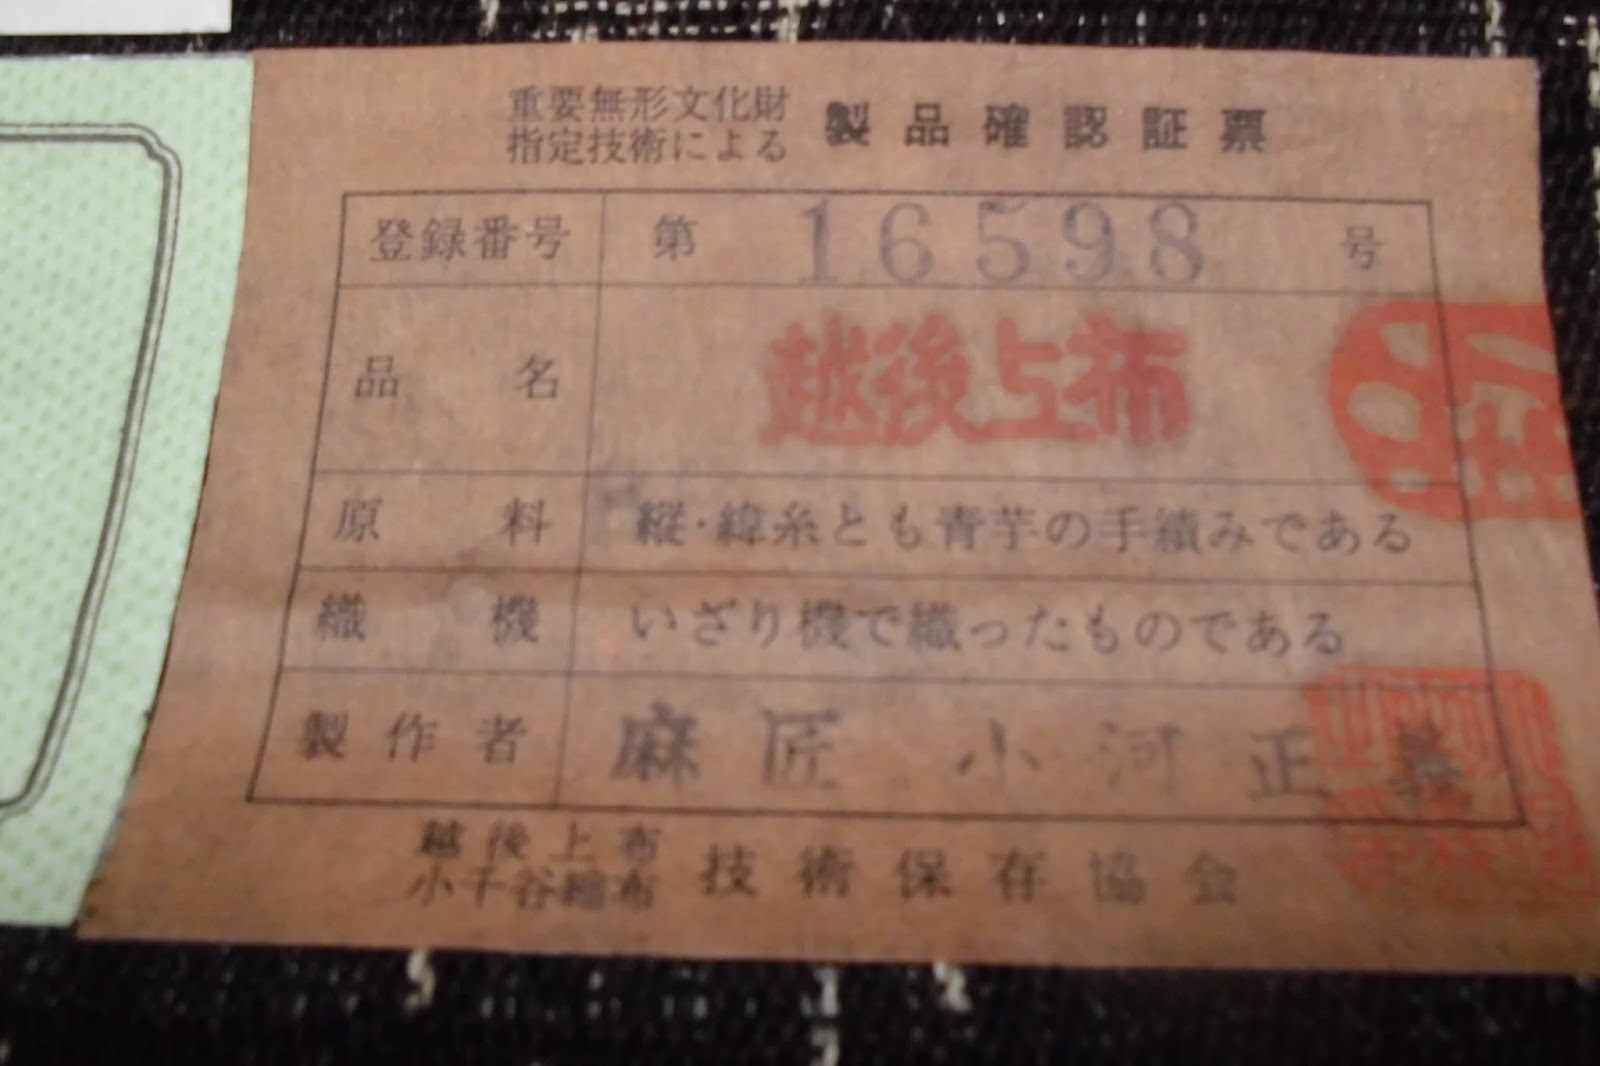 重要無形文化財
指定技術による
製品確認証票
登録番号 第 16598 号
品名 越後上布
原料 縦・緯糸とも青芋の手績みである
織機 いざり機で織ったものである
製作者 麻匠 小河正義
越後上布
小千谷縮布
技術保存協会